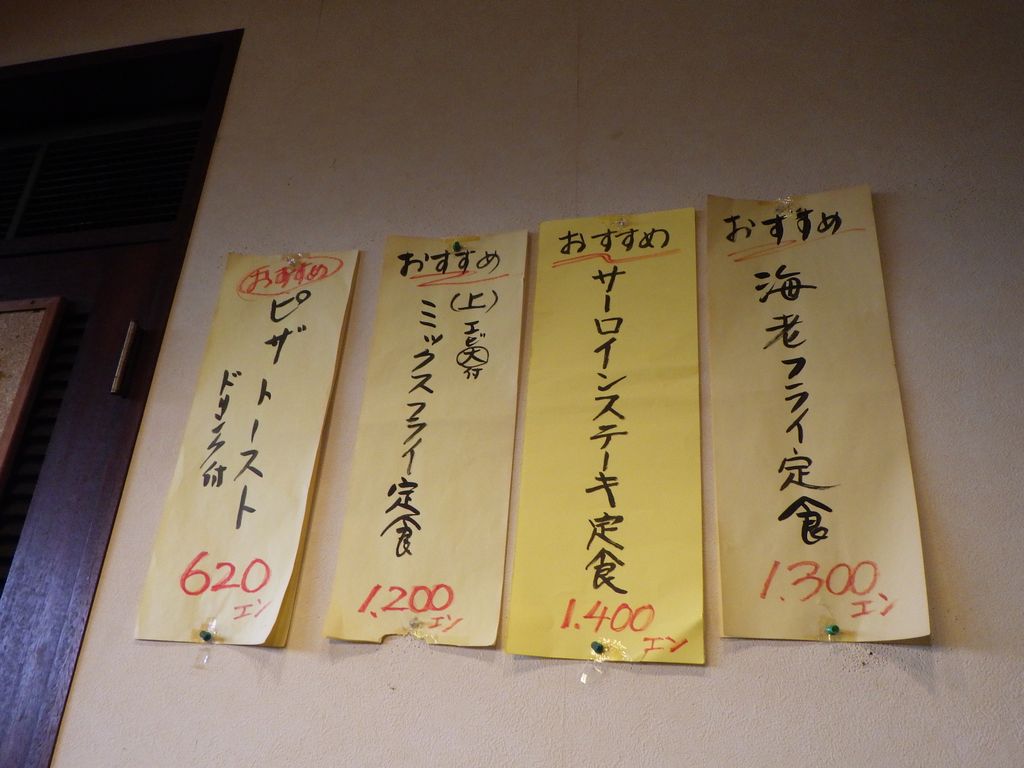 おすすめ
海老フライ定食
1.300エン
おすすめ
サーロインステーキ定食
1.400エン
おすすめ
(上)ミックスフライ定食
エビ大付
1.200エン
おすすめ
ピザトースト
ドリンク付
620エン